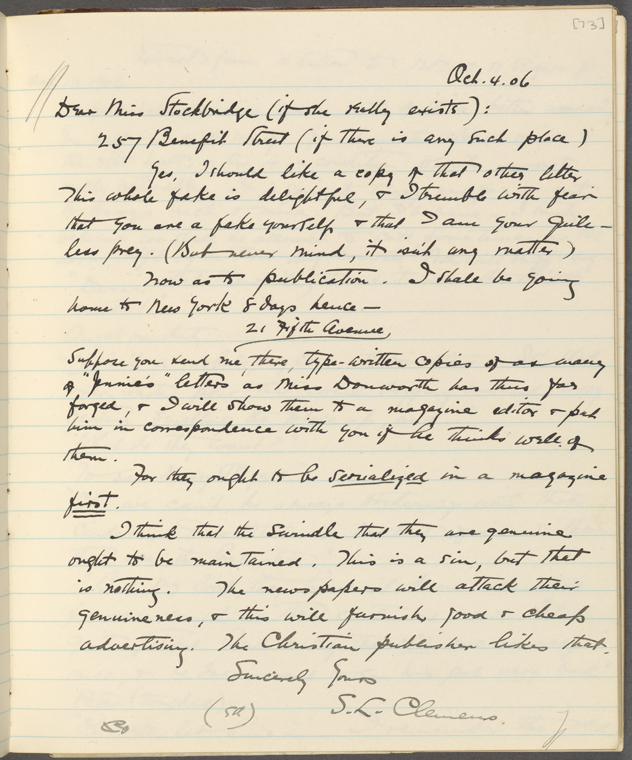 [73]
Oct. 4. 06
Dear Miss Stockbridge (if she really exists):
257 Benefit Street (if there is any such place)
Yes, I should like a copy of that other letter
This whole fake is delightful, & I tremble with fear
that you are a fake yourself & that I am your guile-
less prey. (But never mind, it isn't any matter)
Now as to publication. I shall be going
home to New York 8 days hence —
21 Fifth Avenue,
Suppose you send me, there, type-written copies of as many
of "Jennie's" letters as Miss Donworth has thus far
forged, & I will show them to a magazine editor & put
him in correspondence with you if he thinks well of
them.
For they ought to be serialized in a magazine
first.
I think that the swindle that they are genuine
ought to be maintained. This is a sin, but that
is nothing. The newspapers will attack their
genuineness, & this will furnish good & cheap
advertising. The Christian publisher likes that.
Sincerely Yours
S. L. Clemens.